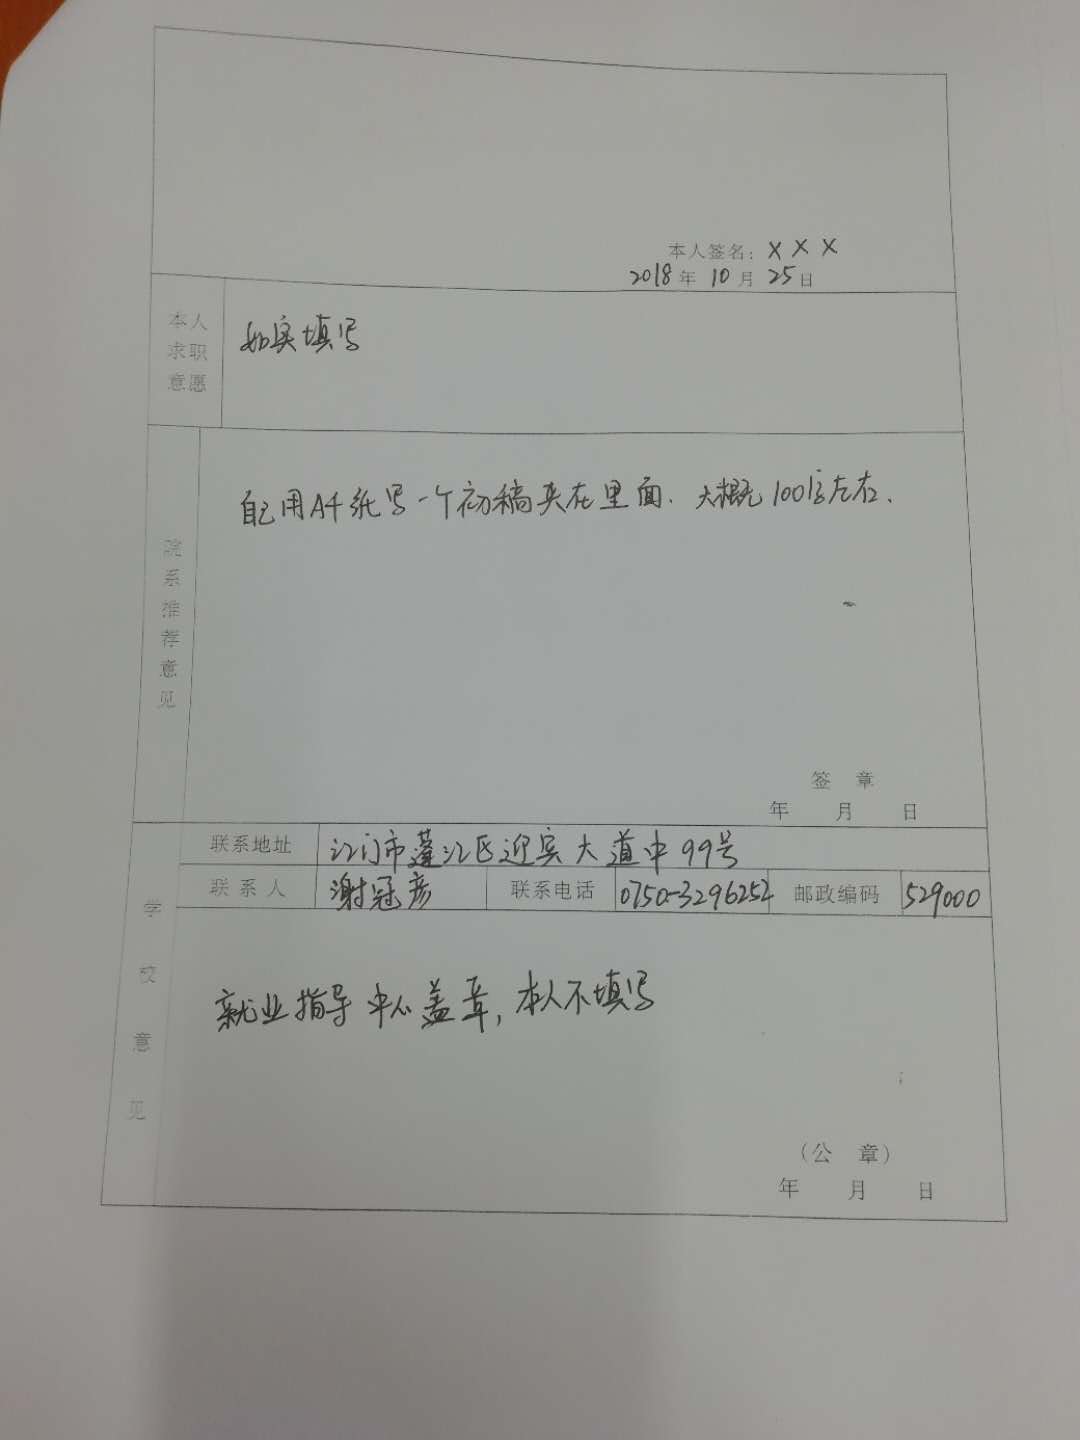 本人签名：X X X
2018年 10月 25日
本人
求职
意愿
如实填写
院系推荐意见
自己用A4纸写一个初稿夹在里面、大概100字左右、
签 章
年 月 日
学校意见
联系地址 江门市蓬江区迎宾大道中99号
联系人 谢冠彦 联系电话 0750-3296252 邮政编码 529000
就业指导中心盖章,本人不填写
（公 章）
年 月 日